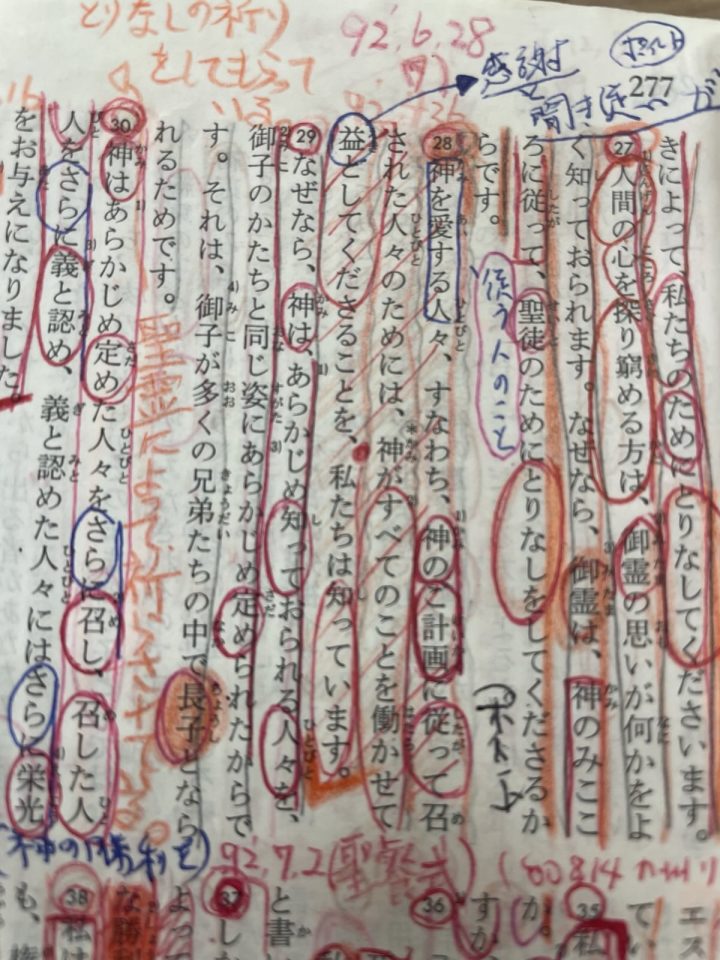 とりなしの祈り
をしてもらって
いる
92'.6.28
感謝
と
聞き従
ポイント
277
きによって、私たちのためにとりなしてくださいます。
27 人間の心を探り窮める方は、御霊の思いが何かをよ
く知っておられます。なぜなら、御霊は、神のみここ
ろに従って、聖徒のためにとりなしをしてくださるか
らです。
従う人のこと
28 神を愛する人々、すなわち、神のご計画に従って召
された人々のためには、神がすべてのことを働かせて
益としてくださることを、私たちは知っています。
29 なぜなら、神は、あらかじめ知っておられる人々を、
御子のかたちと同じ姿にあらかじめ定められたからで
す。それは、御子が多くの兄弟たちの中で長子となら
れるためです。
聖霊によって祈らさせて
30 神はあらかじめ定めた人々をさらに召し、召した人
人をさらに義と認め、義と認めた人々にはさらに栄光
をお与えになりました。
92.7.2
35 私
か。
36
すか
と書
37 しか
よって
な勝利
38 私は
も、